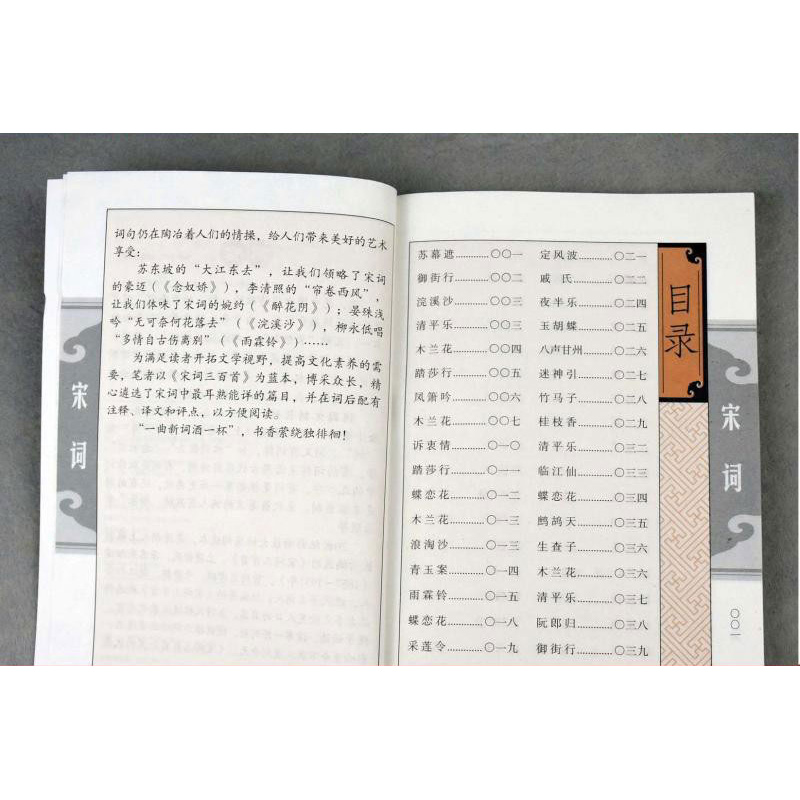 词向仍在陶冶着人们的情操，给人们带来美好的艺术
享受：
苏东坡的“大江东去”，让我们领略了宋词
的豪迈（《念奴娇》），李清照的“帘卷西风”，
让我们体味了宋词的婉约（《醉花阴》）；晏珠浅
吟“无可奈何花落去”（《浣溪沙》），柳永低唱
“多情自古伤离别”（《雨霖铃》）……
为满足读者开拓文学视野，提高文化素养的需
要，笔者以《宋词三百首》为蓝本，博采众长，精
心遴选了宋词中最耳熟能详的篇目，并在词后配有
注释、译文和评点，以方便阅读。
“一曲新词酒一杯”，书香萦绕独徘徊！
宋词
目录
苏幕遮............〇〇一
御街行............〇〇二
浣溪沙............〇〇三
清平乐............〇〇三
木兰花............〇〇四
踏莎行............〇〇五
凤箫吟............〇〇六
木兰花............〇〇七
诉衷情............〇一〇
踏莎行............〇一一
蝶恋花............〇一二
木兰花............〇一三
浪淘沙............〇一三
青玉案............〇一四
雨霖铃............〇一五
蝶恋花............〇一八
采莲令............〇一九
定风波............〇二一
戚氏............〇二二
夜半乐............〇二四
玉胡蝶............〇二五
八声甘州............〇二六
迷神引............〇二七
竹马子............〇二八
桂枝香............〇二九
清平乐............〇三二
临江仙............〇三三
蝶恋花............〇三四
鹧鸪天............〇三五
生查子............〇三六
木兰花............〇三六
清平乐............〇三七
阮郎归............〇三八
御街行............〇三九
宋词
〇〇一